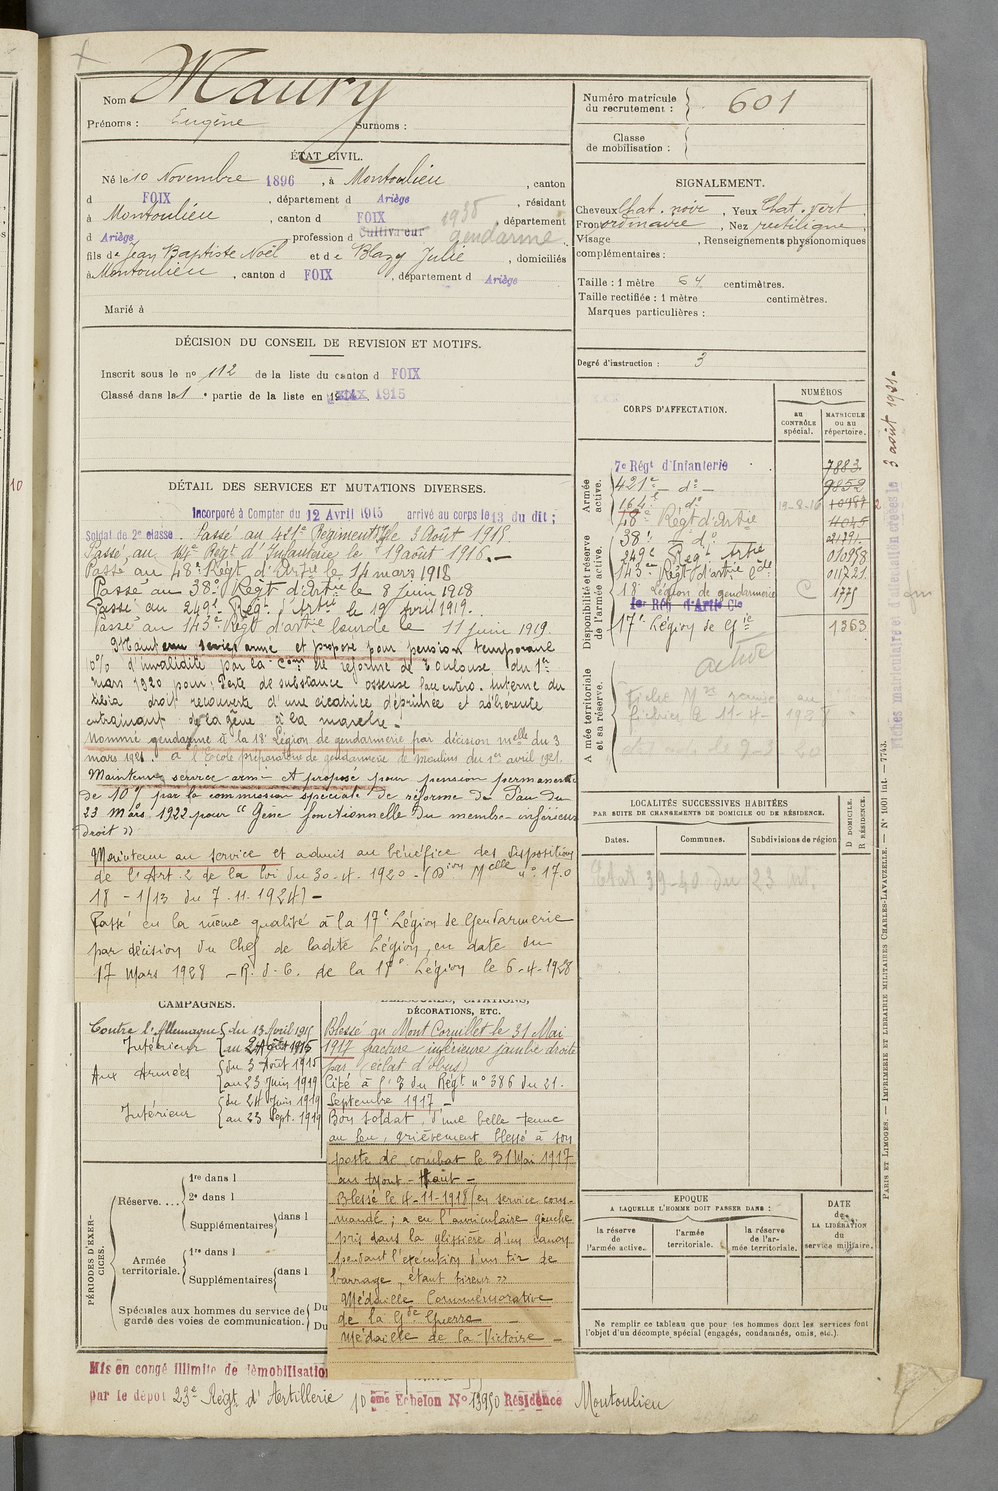 Nom Maury
Prénoms : Eugène Surnoms :
ÉTAT CIVIL.
Né le 10 Novembre 1896, à Montoulieu, canton
d FOIX, département d Ariège, résidant
à Montoulieu, canton d FOIX 1938, département
d Ariège profession d Cultivateur gendarme.
fils de Jean Baptiste Noël et de Blazy Julie, domiciliés
à Montoulieu, canton d FOIX, département d Ariège
Marié à
DÉCISION DU CONSEIL DE REVISION ET MOTIFS.
Inscrit sous le no 112 de la liste du canton d FOIX
Classé dans la 1e partie de la liste en 1915
DÉTAIL DES SERVICES ET MUTATIONS DIVERSES.
Incorporé à Compter du 12 Avril 1915 arrivé au corps le 13 du dit ;
Soldat de 2e classe. Passé au 421e Régiment d'Ife le 3 Août 1915.
Passé au 164e Régt d'Infanterie le 19 août 1916. —
Passé au 48e Régt d'Artie le 14 mars 1918
Passé au 38e Régt d'Artie le 8 Juin 1918
Passé au 249e Régt Artie le 19 Avril 1919.
Passé au 143e Régt d'artie lourde le 11 juin 1919.
Maintenu service armé et proposé pour pension temporaire
10% d'invalidité par la Com de réforme de Toulouse du 1er
mars 1920 pour, Perte de substance osseuse face antéro. interne du
tibia droit recouverte d'une cicatrice déprimée et adhérente
entrainant de la gêne à la marche.
Nommé gendarme à la 18e Légion de gendarmerie par décision melle du 3
mars 1921. à l'Ecole préparatoire de gendarmerie de Moulins du 1er avril 1921.
Maintenu service armé et proposé pour pension permanente
de 10% par la commission spéciale de réforme de Pau du
23 Mars 1922 pour "Gêne fonctionnelle du membre inférieur
droit"
Maintenu au service et admis au bénéfice des dispositions
de l'Art. 2 de la loi du 30-4-1920 - (Dion Melle no 170
18 - 1/13 du 7-11-1924) -
Passé en la même qualité à la 17e Légion de Gendarmerie
par décision du Chef de ladite Légion, en date du
17 Mars 1928 - R.d.C. de la 17e Légion le 6-4-1928
CAMPAGNES.
Contre l'Allemagne du 13 Avril 1915
Intérieur au 2 Août 1915
Aux Armées du 3 Août 1915
au 23 Juin 1919
Intérieur du 24 Juin 1919
au 23 Sept. 1919
BLESSURES, CITATIONS,
DÉCORATIONS, ETC.
Blessé au Mont Cornillet le 31 Mai
1917 fracture inférieure jambe droite
par (éclat d'obus)
Cité à l'O du Régt no 386 du 21.
Septembre 1917 -
Bon soldat, d'une belle tenue
au feu, grièvement blessé à son
poste de combat le 31 Mai 1917
au Mont-Haut -
Blessé le 4-11-1918 (en service com-
mandé ; a eu l'auriculaire gauche
pris dans la glissière d'un canon
pendant l'exécution d'un tir de
barrage, étant tireur »
Médaille Commémorative
de la Gde Guerre -
Médaille de la Victoire -
PÉRIODES D'EXERCICES.
Réserve....
1re dans l
2e dans l
Supplémentaires dans l
Armée territoriale.
1re dans l
Supplémentaires dans l
Spéciales aux hommes du service de Du
garde des voies de communication. Du
Mis en congé illimité de démobilisation
par le dépot 23e Régt d'Artillerie 10 eme Echelon No 13950 Résidence Montoulieu
Numéro matricule
du recrutement : 601
Classe
de mobilisation :
SIGNALEMENT.
Cheveux Chat. noir, Yeux Chat. vert,
Front ordinaire, Nez rectiligne,
Visage , Renseignements physionomiques
complémentaires :
Taille : 1 mètre 64 centimètres.
Taille rectifiée : 1 mètre centimètres.
Marques particulières :
Degré d'instruction : 3
CORPS D'AFFECTATION.
NUMÉROS
au CONTRÔLE spécial.
MATRICULE ou au répertoire.
Armée active.
7e Régt d'Infanterie 7883
421e - do - 9852
164e do 19-8-16 10487
48e Régt d'Artie 11045
Disponibilité et réserve de l'armée active.
38e do 21791
249e Régt Artie 010958
143e Régt d'artie Lde 011721
18e Légion de gendarmerie C 1775
17e Légion de Gie 1363
active
Armée territoriale et sa réserve.
LOCALITÉS SUCCESSIVES HABITÉES
PAR SUITE DE CHANGEMENTS DE DOMICILE OU DE RÉSIDENCE.
Dates. Communes. Subdivisions de région
D DOMICILE.
R RÉSIDENCE.
Etat 39-40 du 23 Art.
EPOQUE
A LAQUELLE L'HOMME DOIT PASSER DANS :
la réserve de l'armée active.
l'armée territoriale.
la réserve de l'armée territoriale.
DATE
de
LA LIBÉRATION
du
service militaire.
Ne remplir ce tableau que pour les hommes dont les services font
l'objet d'un décompte spécial (engagés, condamnés, omis, etc.).
PARIS ET LIMOGES. — IMPRIMERIE ET LIBRAIRIE MILITAIRES CHARLES-LAVAUZELLE. — No 1001 int. — 7743.
Fiches matriculaire et d'affectation créées le 3 août 1921.
10